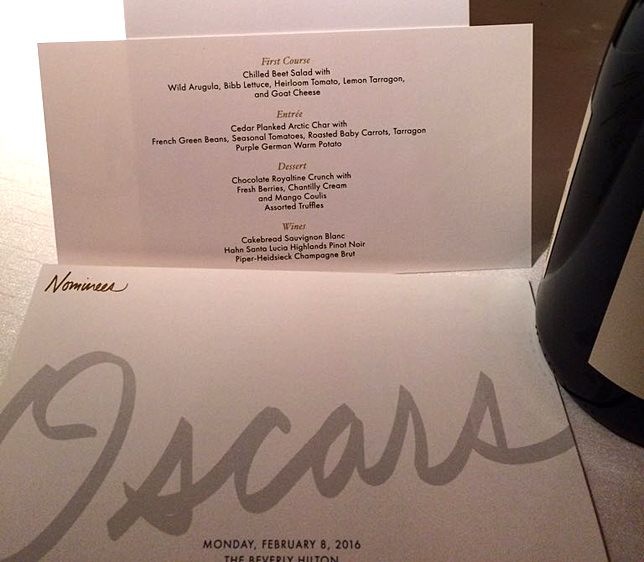 First Course
Chilled Beet Salad with
Wild Arugula, Bibb Lettuce, Heirloom Tomato, Lemon Tarragon,
and Goat Cheese
Entrée
Cedar Planked Arctic Char with
French Green Beans, Seasonal Tomatoes, Roasted Baby Carrots, Tarragon
Purple German Warm Potato
Dessert
Chocolate Royaltine Crunch with
Fresh Berries, Chantilly Cream
and Mango Coulis
Assorted Truffles
Wines
Cakebread Sauvignon Blanc
Hahn Santa Lucia Highlands Pinot Noir
Piper-Heidsieck Champagne Brut
Nominees
Oscars
MONDAY, FEBRUARY 8, 2016
THE BEVERLY HILTON